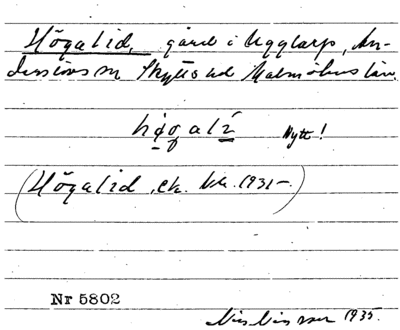 Högalid, gård i Ugglarp, An-
derslövs sn Skytts hd Malmöhus län.
hø̱galí̱ Nytt!
(Högalid, ek. bl. 1931–)
Nr 5802
1935.